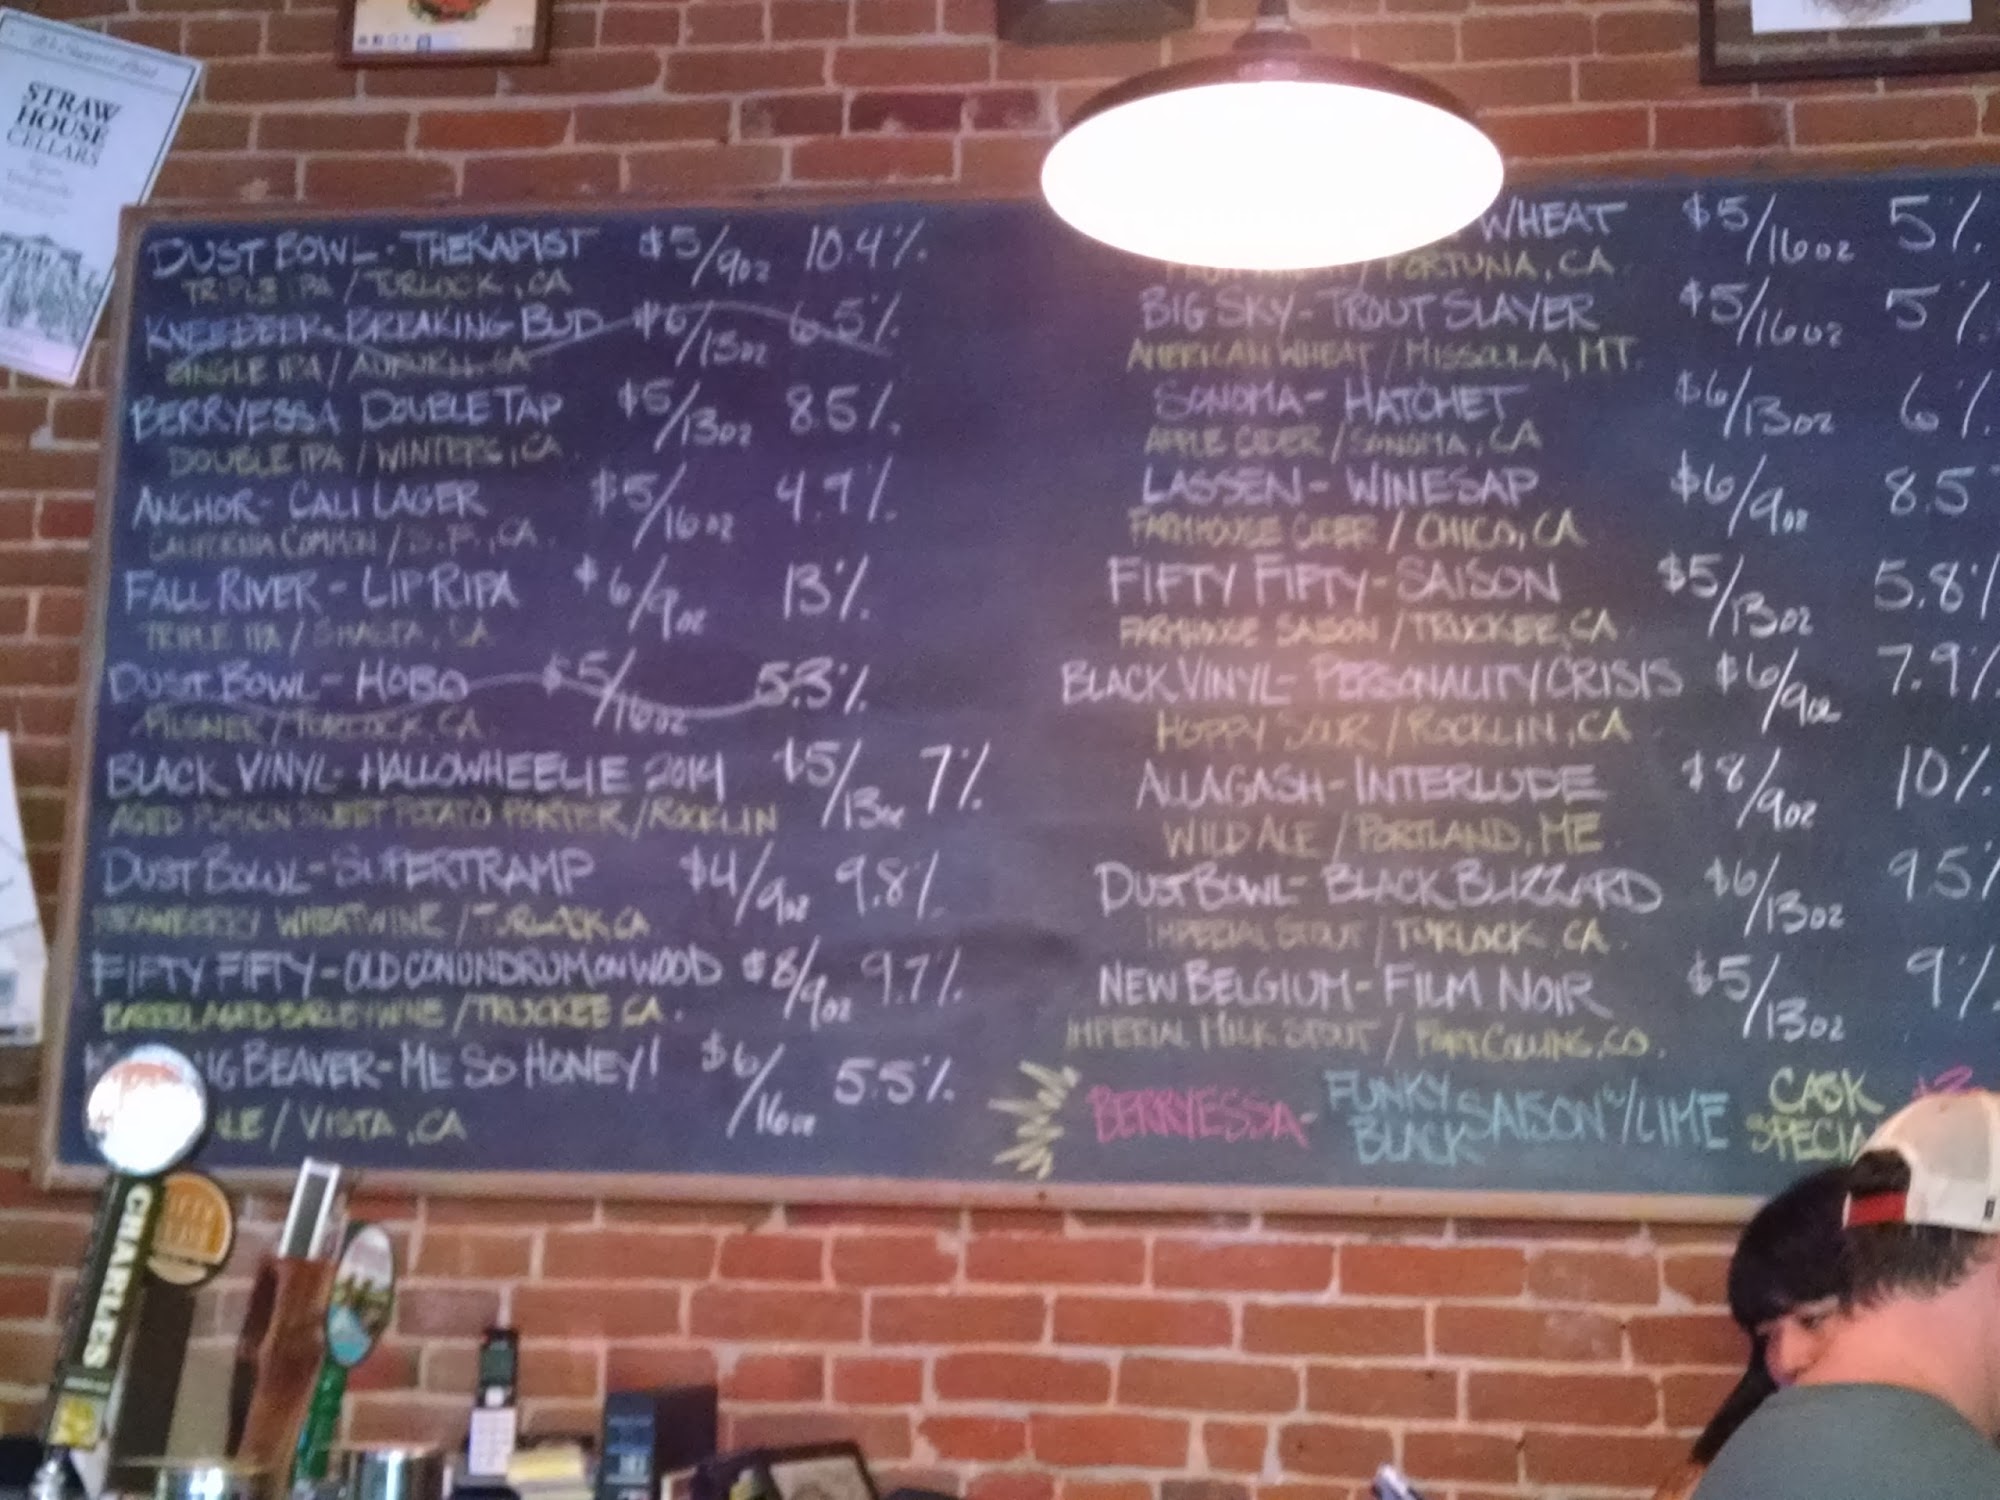 STRAW
HOUSE
CELLARS
DUST BOWL - THERAPIST $5/9oz 10.4%
TRIPLE IPA / TURLOCK, CA
KNEEDEEP - BREAKING BUD $6/13oz 6.5%
SINGLE IPA / AUBURN, CA
BERRYESSA DOUBLE TAP $5/13oz 8.5%
DOUBLE IPA / WINTERS, CA
ANCHOR - CALI LAGER $5/16oz 4.9%
CALIFORNIA COMMON / S.F., CA
FALL RIVER - LIP RIPA $6/9oz 13%
TRIPLE IPA / SHASTA, CA
DUST BOWL - HOBO $5/16oz 5.3%
PILSNER / TURLOCK, CA
BLACK VINYL - HALLOWHEELIE 2014 $5/13oz 7%
AGED PUMKIN SWEET POTATO PORTER / ROCKLIN
DUST BOWL - SUPERTRAMP $4/9oz 9.8%
STRAWBERRY WHEATWINE / TURLOCK, CA
FIFTY FIFTY - OLD CONUNDRUM ON WOOD $8/9oz 9.7%
BARREL AGED BARLEYWINE / TRUCKEE CA.
BEAVER - ME SO HONEY! $6/16oz 5.5%
/ VISTA, CA
WHEAT $5/16oz 5%
/ FORTUNA, CA
BIG SKY - TROUT SLAYER $5/16oz 5%
AMERICAN WHEAT / MISSOULA, MT.
SONOMA - HATCHET $6/13oz 6%
APPLE CIDER / SONOMA, CA
LASSEN - WINESAP $6/9oz 8.5
FARMHOUSE CIDER / CHICO, CA
FIFTY FIFTY - SAISON $5/13oz 5.8%
FARMHOUSE SAISON / TRUCKEE, CA
BLACK VINYL - PERSONALITY CRISIS $6/9oz 7.9%
HOPPY SOUR / ROCKLIN, CA
ALLAGASH - INTERLUDE $8/9oz 10%
WILD ALE / PORTLAND, ME
DUST BOWL - BLACK BLIZZARD $6/13oz 9.5%
IMPERIAL STOUT / TURLOCK CA.
NEW BELGIUM - FILM NOIR $5/13oz 9%
IMPERIAL MILK STOUT / FORT COLLINS, CO.
BERRYESSA - FUNKY BLACK SAISON W/LIME CASK
CHARLES